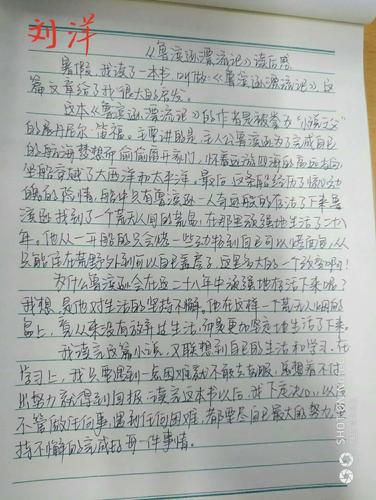 刘洋
《鲁滨逊漂流记》读后感
暑假,我读了一本书,叫做《鲁滨逊漂流记》,这
篇文章给了我很大的启发。
这本《鲁滨逊漂流记》的作者是被誉为"小说之父"
的丹尼尔·笛福。主要讲的是:主人公鲁滨逊为了完成自己
的航海梦想而偷偷离开家门,怀着远游四海的高远志向
坐船穿越了大西洋和太平洋。最后,这条船经历了惊心动
魄的险情,船中只有鲁滨逊一人奇迹般的存活了下来。鲁
滨逊找到了一个荒无人烟的荒岛,在那里顽强地生活了二十八
年。他从一开始的只会猎一些动物到自己可以
只能住在荒野外到可以自己盖房子,这是多大的一个改变啊!
为什么鲁滨逊会在这二十八年中顽强地存活下来呢?
我想,是他对生活的坚持不懈。他在这样一个荒无人烟的
岛上,看从来没有放弃过生活,而是更加坚定地生活了下来。
我读完这篇小说,又联想到自己的生活和学习。在
学习上,我只要遇到一点困难就不敢去克服,总想着不付
出努力就得到回报。读完这本书以后,我下定决心,以后
不管做任何事,遇到任何困难,都要尽自己最大的努力,坚
持不懈的完成好每一件事情。
SHOT ON